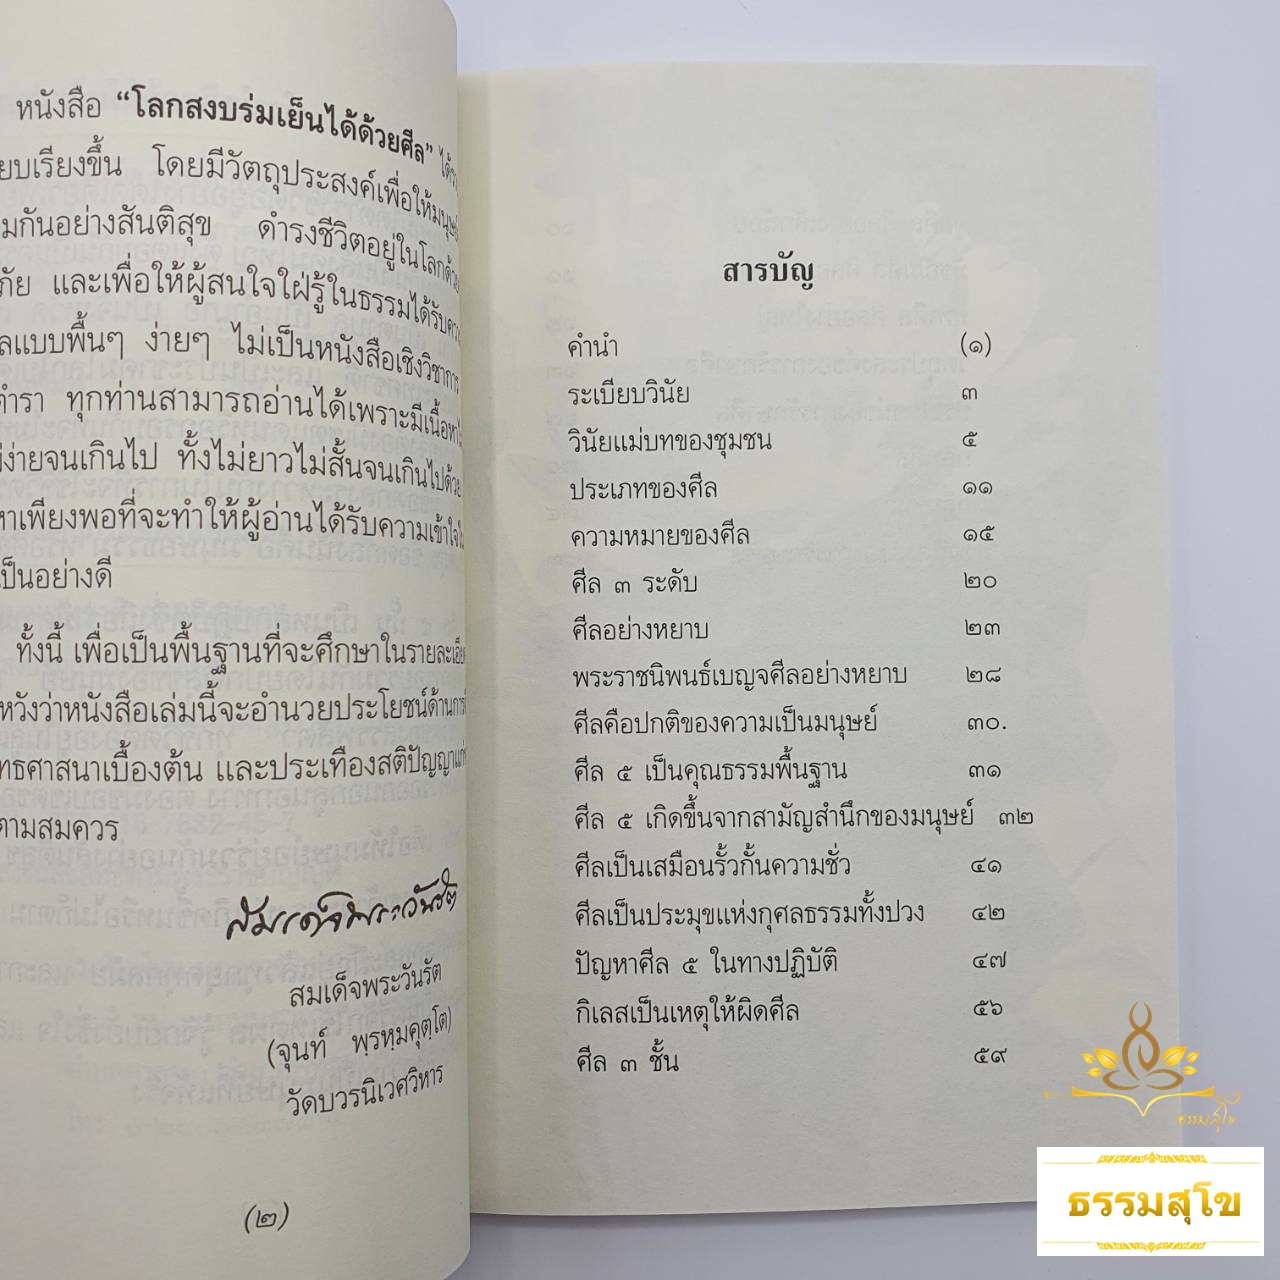 หนังสือ “โลกสงบร่มเย็นได้ด้วยศีล”
ยบเรียงขึ้น โดยมีวัตถุประสงค์เพื่อให้มนุษย์
มกันอย่างสันติสุข ดำรงชีวิตอยู่ในโลกด้วย
ภัย และเพื่อให้ผู้สนใจใฝ่รู้ในธรรมได้รับ
ลแบบพื้นๆ ง่ายๆ ไม่เป็นหนังสือเชิงวิชาการ
ตำรา ทุกท่านสามารถอ่านได้เพราะมีเนื้อหา
ง่ายจนเกินไป ทั้งไม่ยาวไม่สั้นจนเกินไปด้วย
หาเพียงพอที่จะทำให้ผู้อ่านได้รับความเข้าใจ
เป็นอย่างดี
ทั้งนี้ เพื่อเป็นพื้นฐานที่จะศึกษาในรายละเอีย
หวังว่าหนังสือเล่มนี้จะอำนวยประโยชน์ด้านการ
ทธศาสนาเบื้องต้น และประเทืองสติปัญญาแก่
ตามสมควร
สมเด็จพระวันรัต
สมเด็จพระวันรัต
(จุนท์ พฺรหฺมคุตฺโต)
วัดบวรนิเวศวิหาร
(๒)
สารบัญ
คำนำ (๑)
ระเบียบวินัย ๓
วินัยแม่บทของชุมชน ๕
ประเภทของศีล ๑๑
ความหมายของศีล ๑๕
ศีล ๓ ระดับ ๒๐
ศีลอย่างหยาบ ๒๓
พระราชนิพนธ์เบญจศีลอย่างหยาบ ๒๘
ศีลคือปกติของความเป็นมนุษย์ ๓๐.
ศีล ๕ เป็นคุณธรรมพื้นฐาน ๓๑
ศีล ๕ เกิดขึ้นจากสามัญสำนึกของมนุษย์ ๓๒
ศีลเป็นเสมือนรั้วกั้นความชั่ว ๔๑
ศีลเป็นประมุขแห่งกุศลธรรมทั้งปวง ๔๒
ปัญหาศีล ๕ ในทางปฏิบัติ ๔๗
กิเลสเป็นเหตุให้ผิดศีล ๕๖
ศีล ๓ ชั้น ๕๙
ธรรมสุโข
ธรรมสุโข